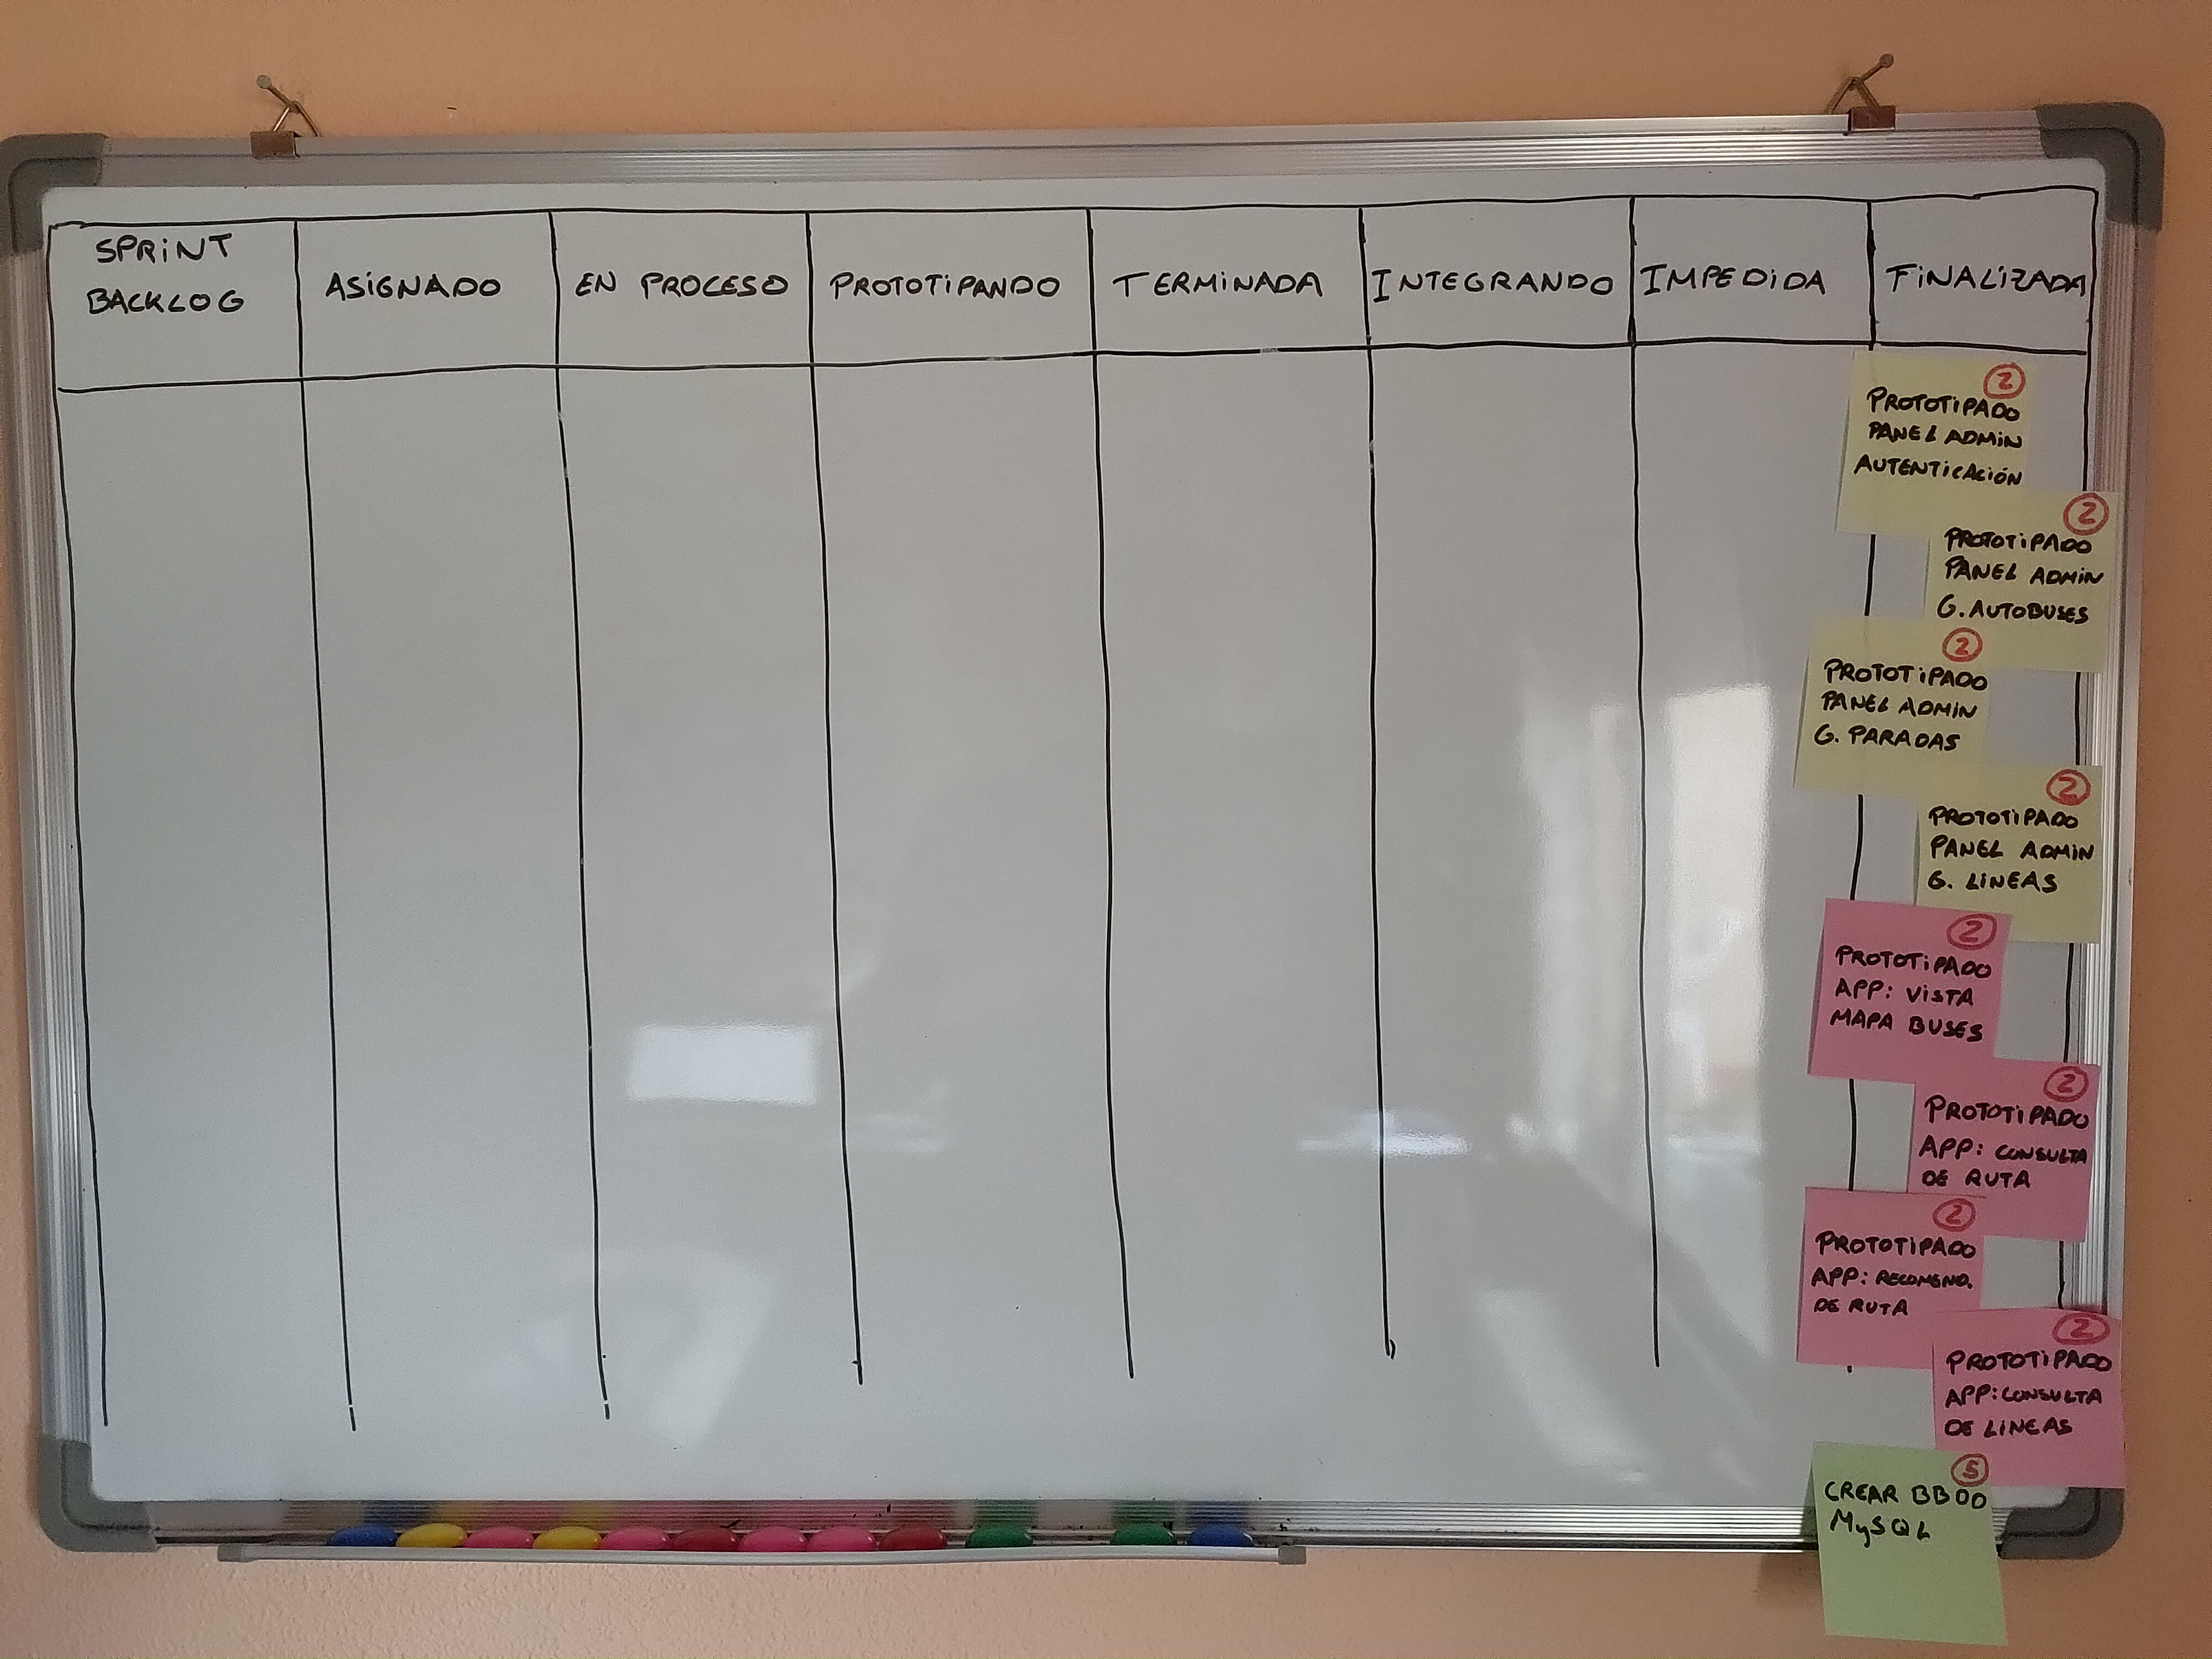 SPRINT
BACKLOG
ASIGNADO
EN PROCESO
PROTOTIPANDO
TERMINADA
INTEGRANDO
IMPEDIDA
FINALIZADA
2
PROTOTIPADO
PANEL ADMIN
AUTENTICACIÓN
2
PROTOTIPADO
PANEL ADMIN
G. AUTOBUSES
2
PROTOTIPADO
PANEL ADMIN
G. PARADAS
2
PROTOTIPADO
PANEL ADMIN
G. LINEAS
2
PROTOTIPADO
APP: VISTA
MAPA BUSES
2
PROTOTIPADO
APP: CONSULTA
DE RUTA
2
PROTOTIPADO
APP: RECOMEND.
DE RUTA
2
PROTOTIPADO
APP: CONSULTA
DE LINEAS
5
CREAR BBDD
MySQL